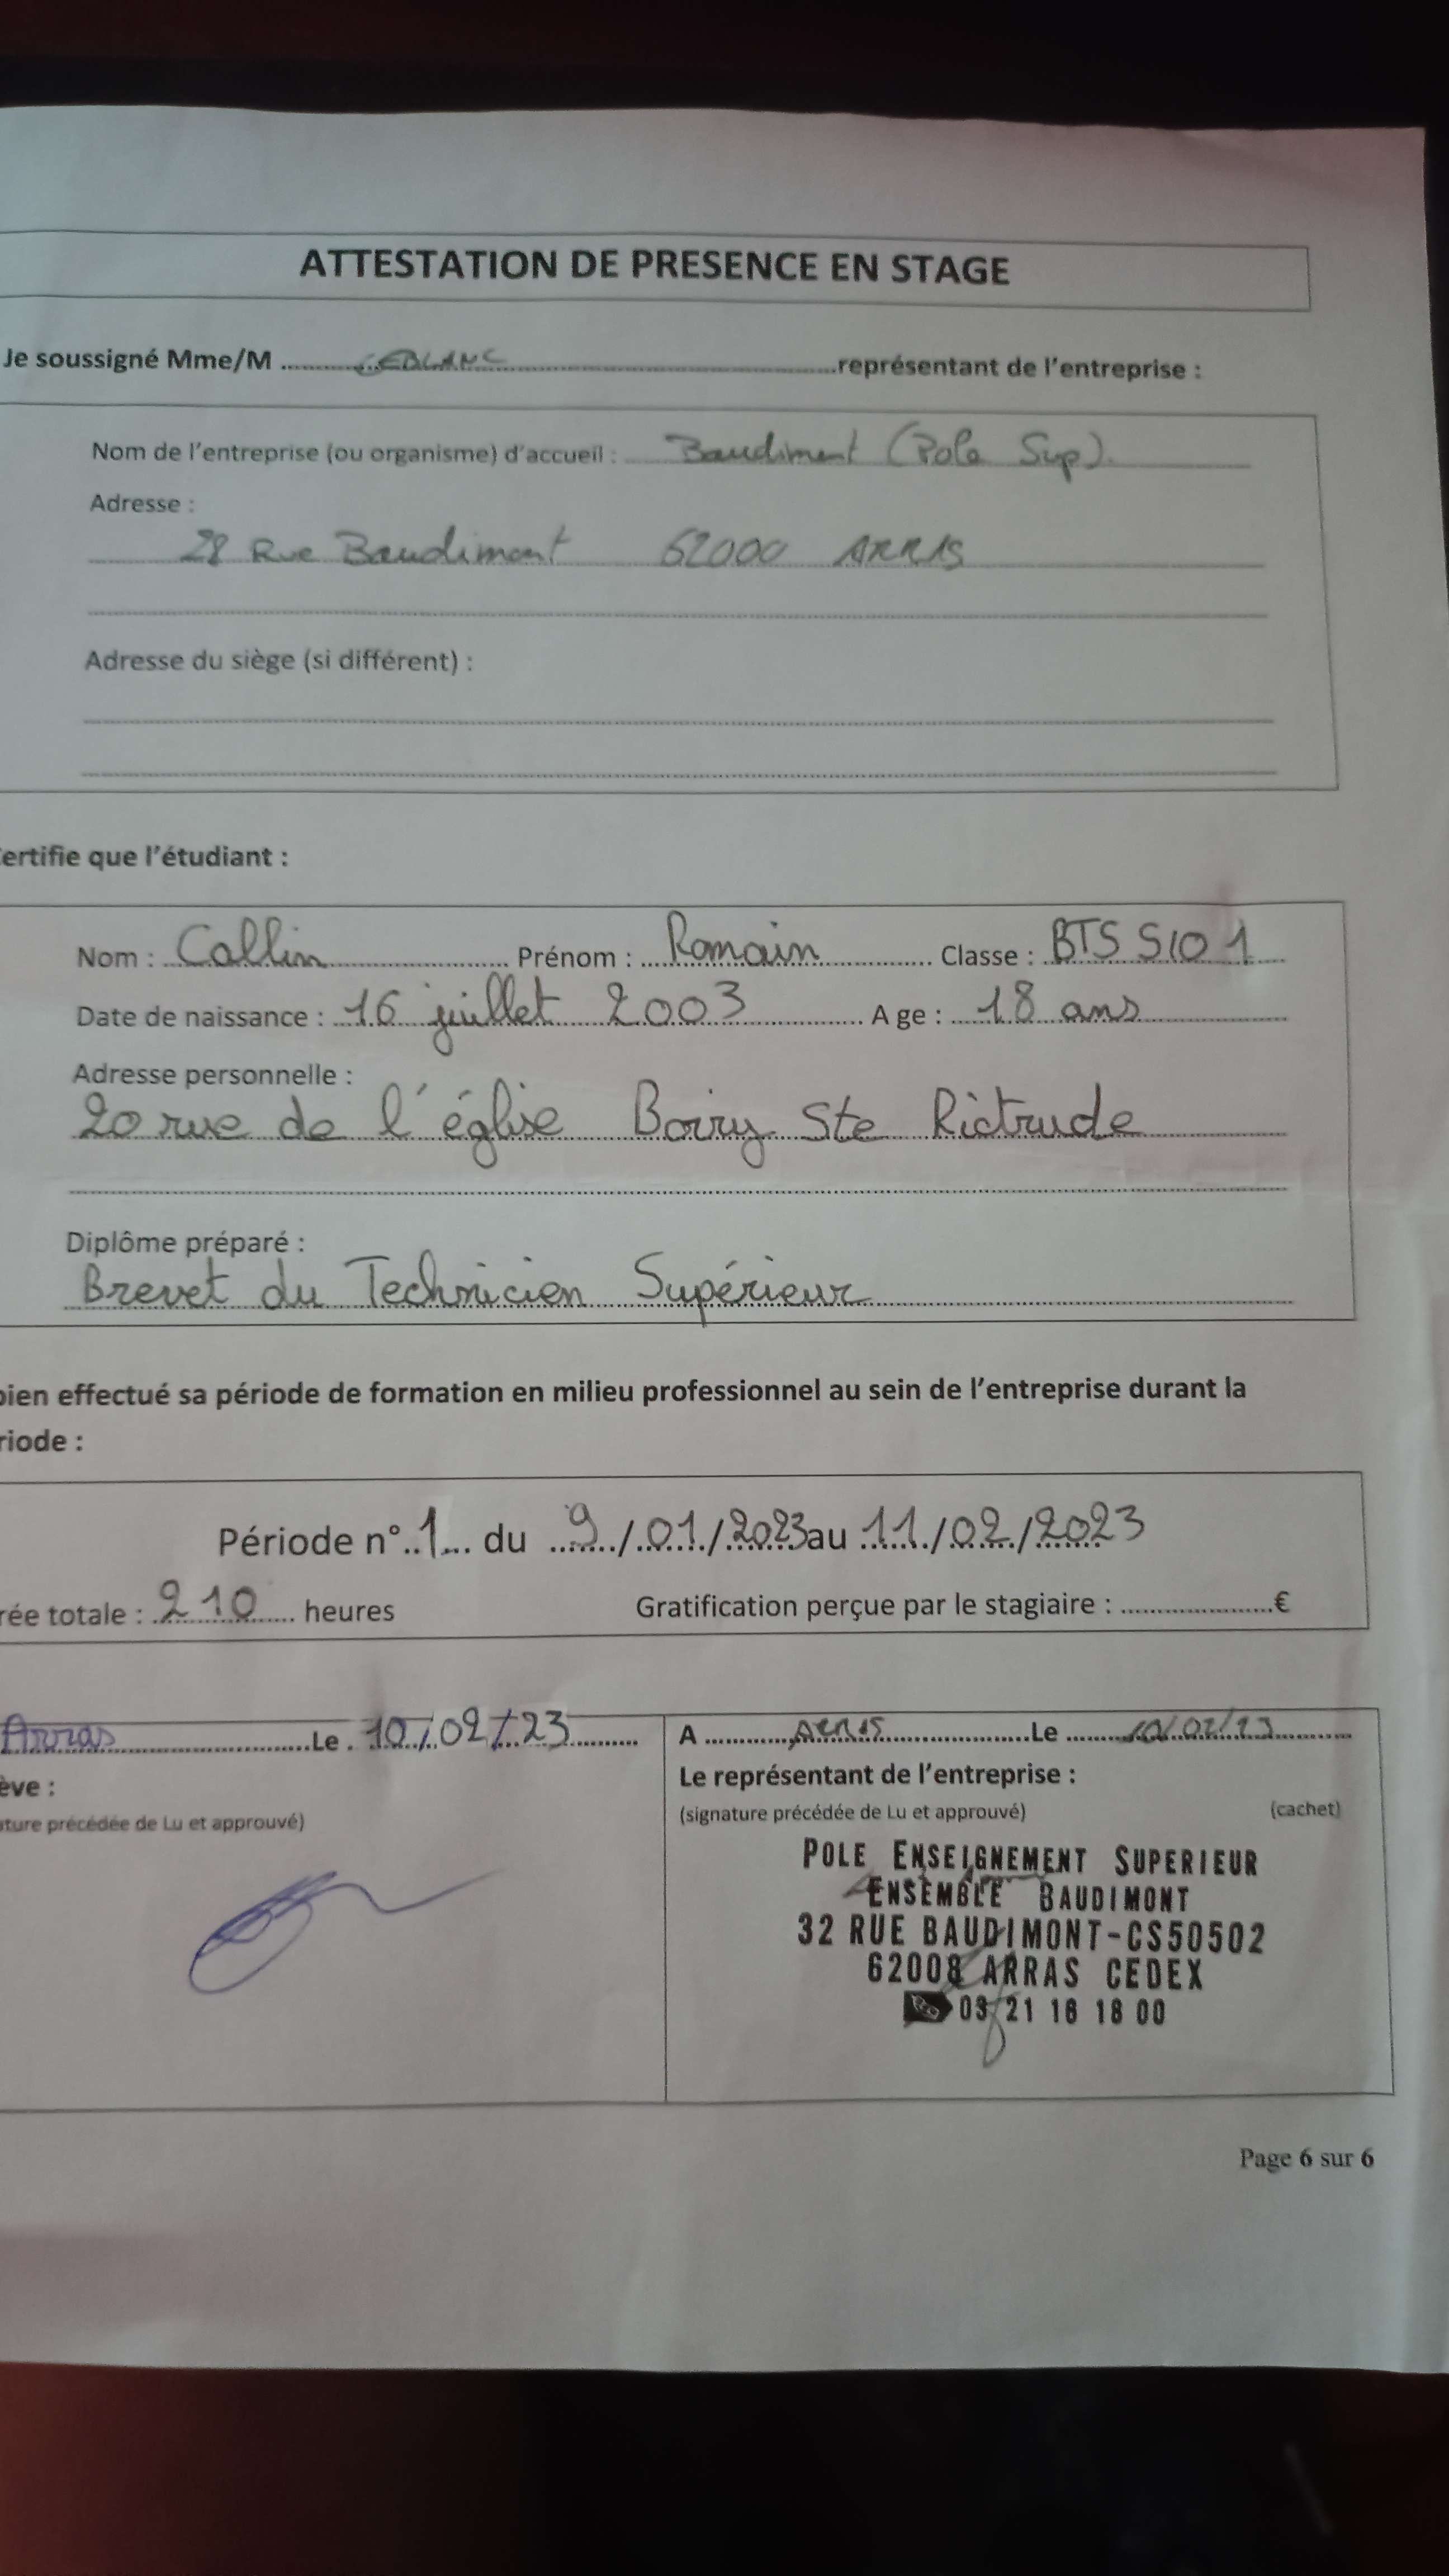 ATTESTATION DE PRESENCE EN STAGE
Je soussigné Mme/M ........ LEBLANC ........ représentant de l'entreprise :
Nom de l'entreprise (ou organisme) d'accueil : Baudimont (Pole Sup)
Adresse :
28 Rue Baudimont 62000 ARRAS
Adresse du siège (si différent) :
ertifie que l'étudiant :
Nom : Callin Prénom : Romain Classe : BTS SIO 1
Date de naissance : 16 juillet 2003 A ge : 18 ans
Adresse personnelle :
20 rue de l'église Boiry Ste Rictrude
Diplôme préparé :
Brevet du Technicien Supérieur
bien effectué sa période de formation en milieu professionnel au sein de l'entreprise durant la
riode :
Période n° 1 du 9/01/2023 au 11/02/2023
rée totale : 210 heures Gratification perçue par le stagiaire : ........ €
Arras Le 10/02/23
ève :
ture précédée de Lu et approuvé)
A Arras Le 10/02/23
Le représentant de l'entreprise :
(signature précédée de Lu et approuvé) (cachet)
POLE ENSEIGNEMENT SUPERIEUR
ENSEMBLE BAUDIMONT
32 RUE BAUDIMONT-CS50502
62008 ARRAS CEDEX
03 21 16 18 00
Page 6 sur 6